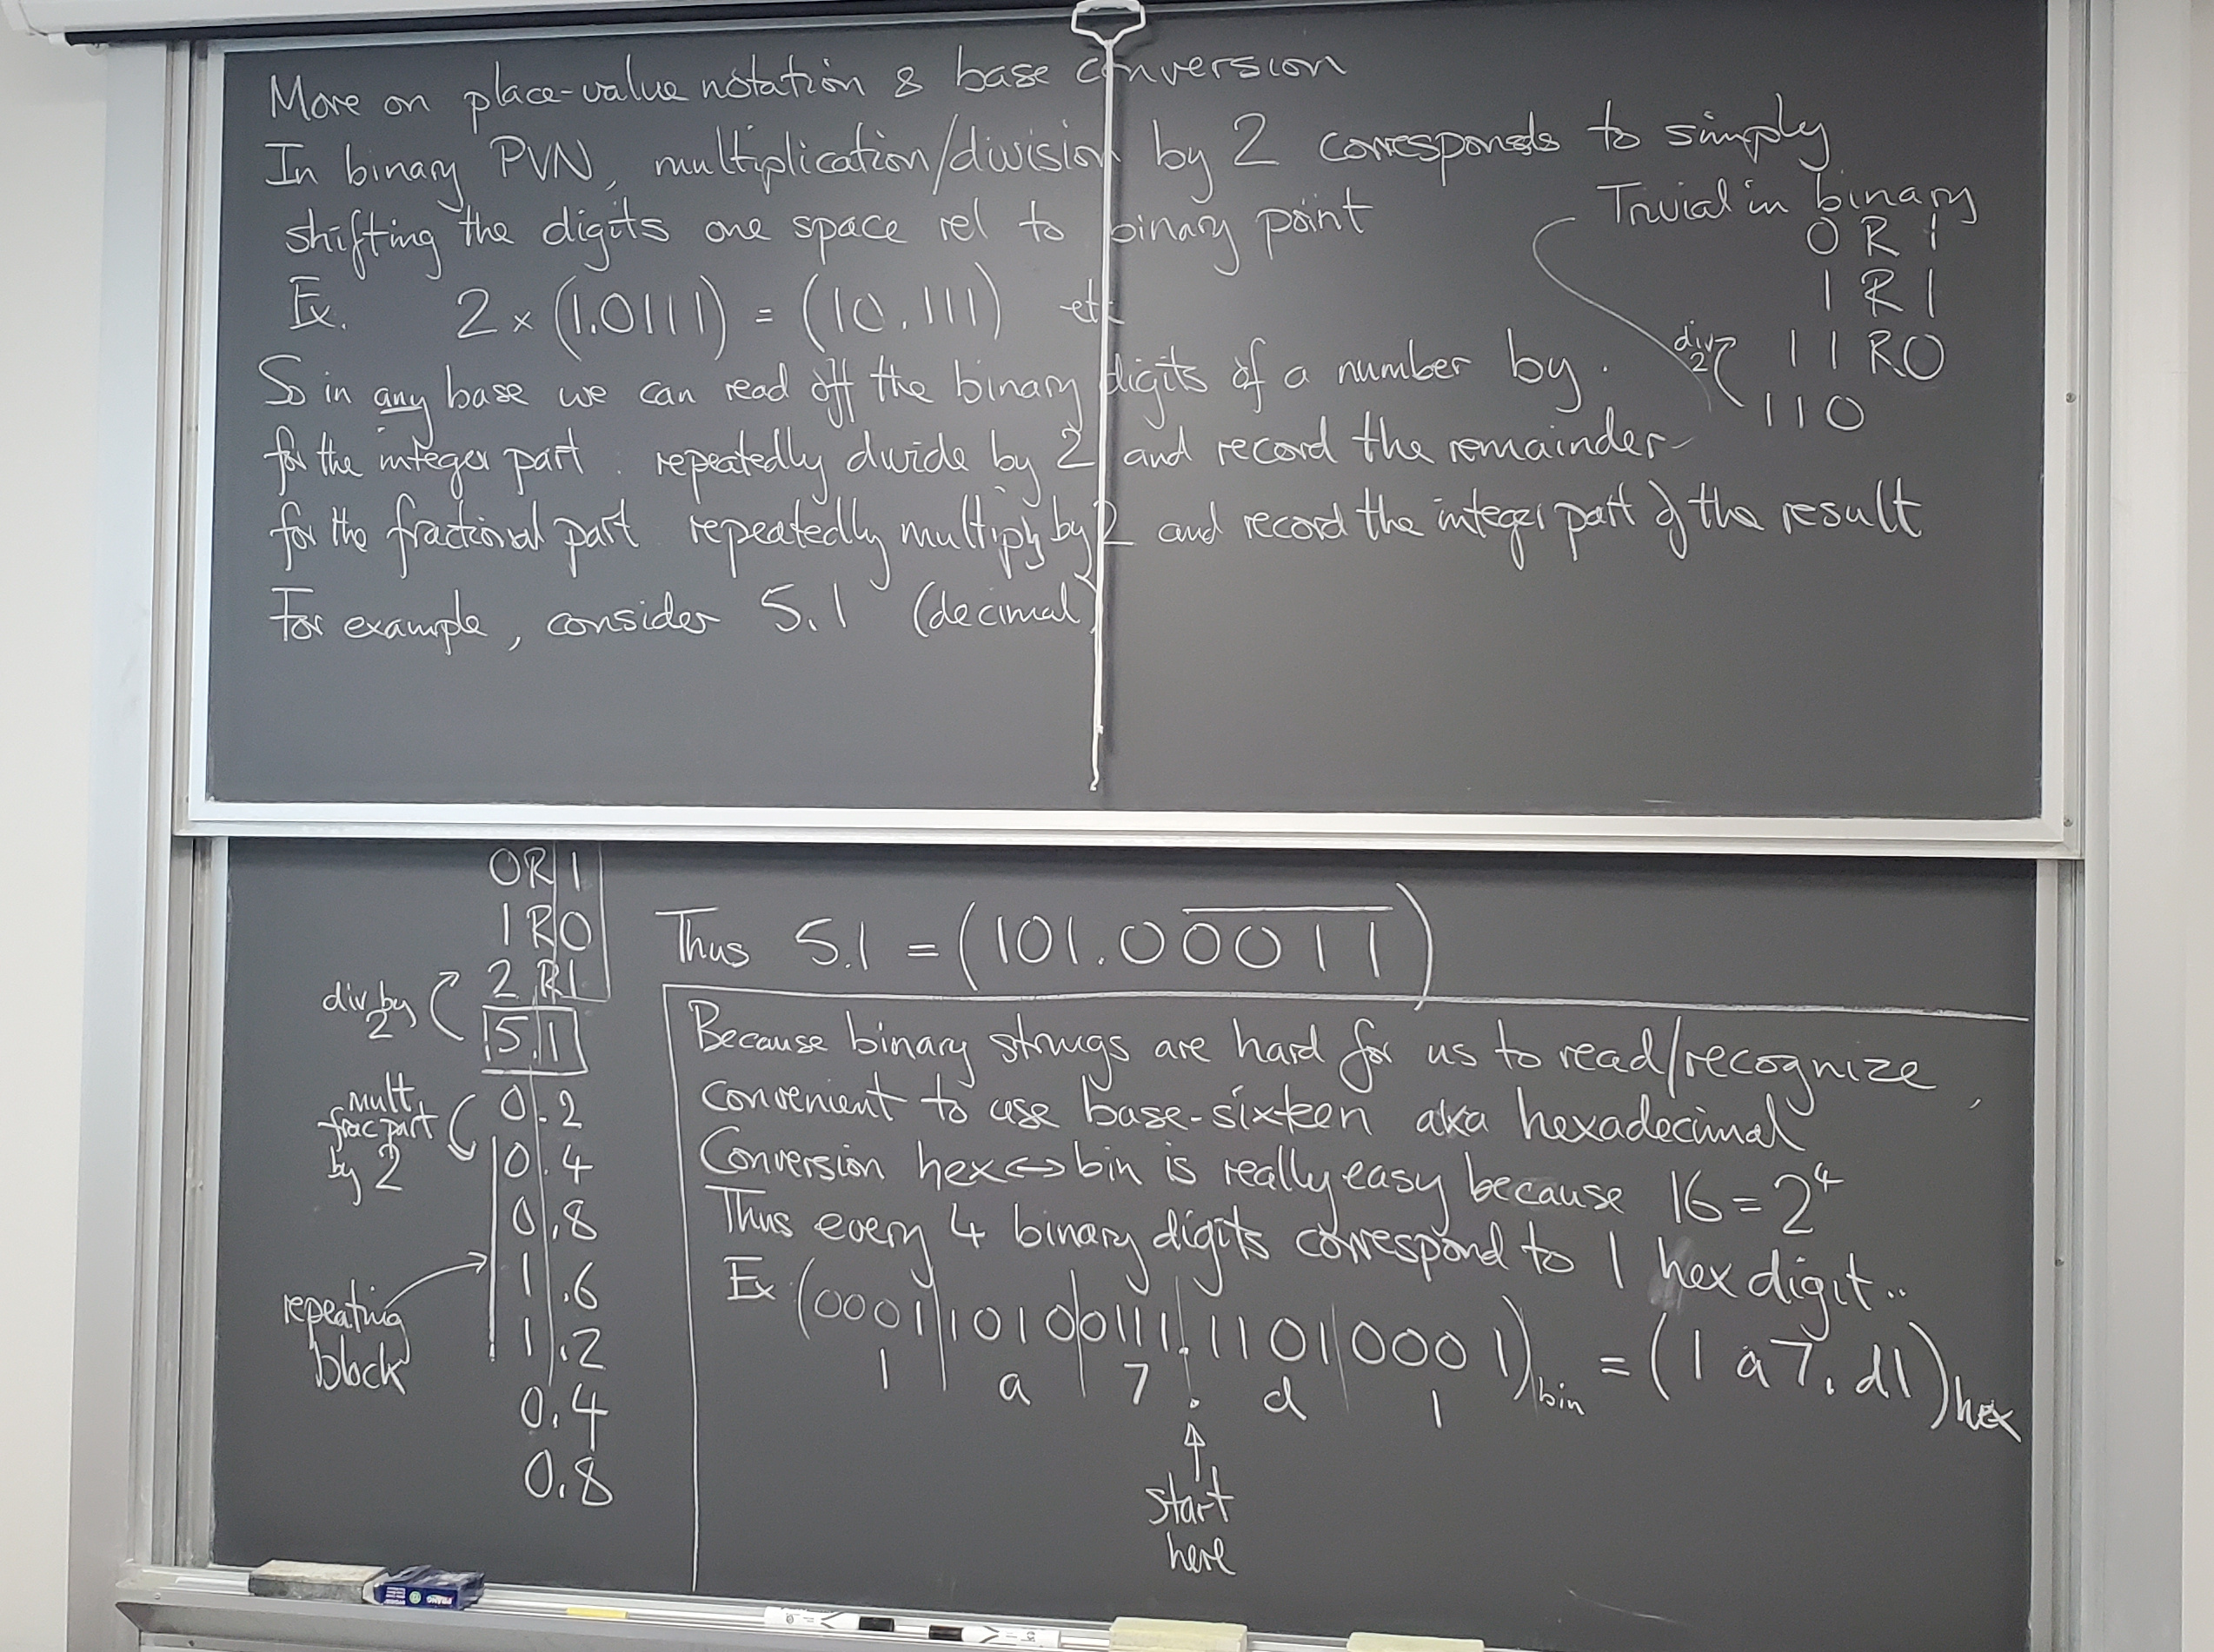 More on place-value notation & base conversion
In binary PVN, multiplication/division by 2 corresponds to simply
shifting the digits one space rel to binary point
Trivial in binary
0 R 1
1 R 1
div 2 1 1 R0
110
Ex. 2 × (1.0111) = (10.111) etc
So in any base we can read off the binary digits of a number by.
for the integer part. repeatedly divide by 2 and record the remainder
for the fractional part repeatedly multiply by 2 and record the integer part of the result
For example, consider 5.1 (decimal)
0R 1
1 R0
2 R1
div by
2
5.1
mult
frac part
by 2
0.2
0.4
0.8
1.6
1.2
0.4
0.8
repeating
block
Thus 5.1 = (101.00̅0̅1̅1̅)
Because binary strings are hard for us to read/recognize,
convenient to use base-sixteen aka hexadecimal
Conversion hex↔bin is really easy because 16=2⁴
Thus every 4 binary digits correspond to 1 hex digit..
Ex (0001|1010|0111.1101|0001)bin = (1a7.d1)hex
1 a 7 . d 1
start
here